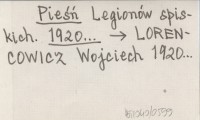 Pieśń Legionów spis-
kich. 1920... → LOREN-
COWICZ Wojciech 1920...